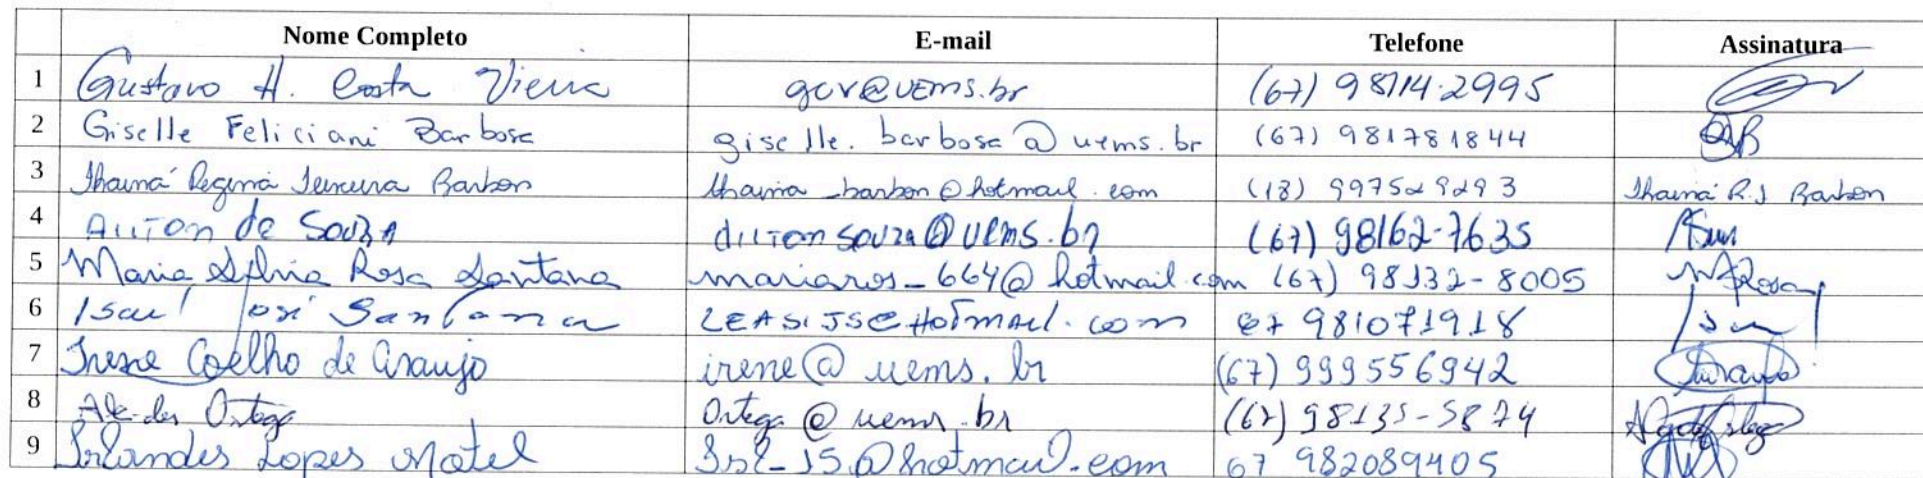 Nome Completo E-mail Telefone Assinatura
1 Gustavo H. Costa Vieira gcv@uems.br (67) 98114-2995
2 Giselle Feliciani Barbosa giselle.barbosa@uems.br (67) 981781844
3 Thainá Regina Barbon thaina_barbon@hotmail.com (18) 997529293 Thainá R.J Barbon
4 Ailton de Souza (67) 98162-7635
5 Maria Silvia Rosa Santana mariaros_664@hotmail.com (67) 98132-8005 Rosa
6 José Santana LEASIJS@HOTMAIL.com 67 981071918
7 Irene Coelho de Araujo irene@uems.br (67) 999556942
8 Ortega Ortega@uems.br (67) 98135-5874
9 Irlandes Lopes Matel Irl_15@hotmail.com 67 982089405